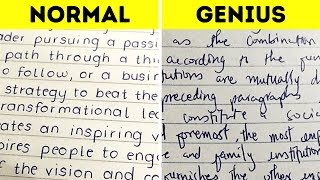 NORMAL
GENIUS
ader pursuing a passi
path through a thi
to follow, or a busin
strategy to beat the
transformational lea
ates an inspiring vi
pires people to enga
f the vision and co
as the combination
according to the fun
tutions are mutually d
preceding paragraphs
constitute a soci
foremost, the most em
and family institution
furnishes the other ens